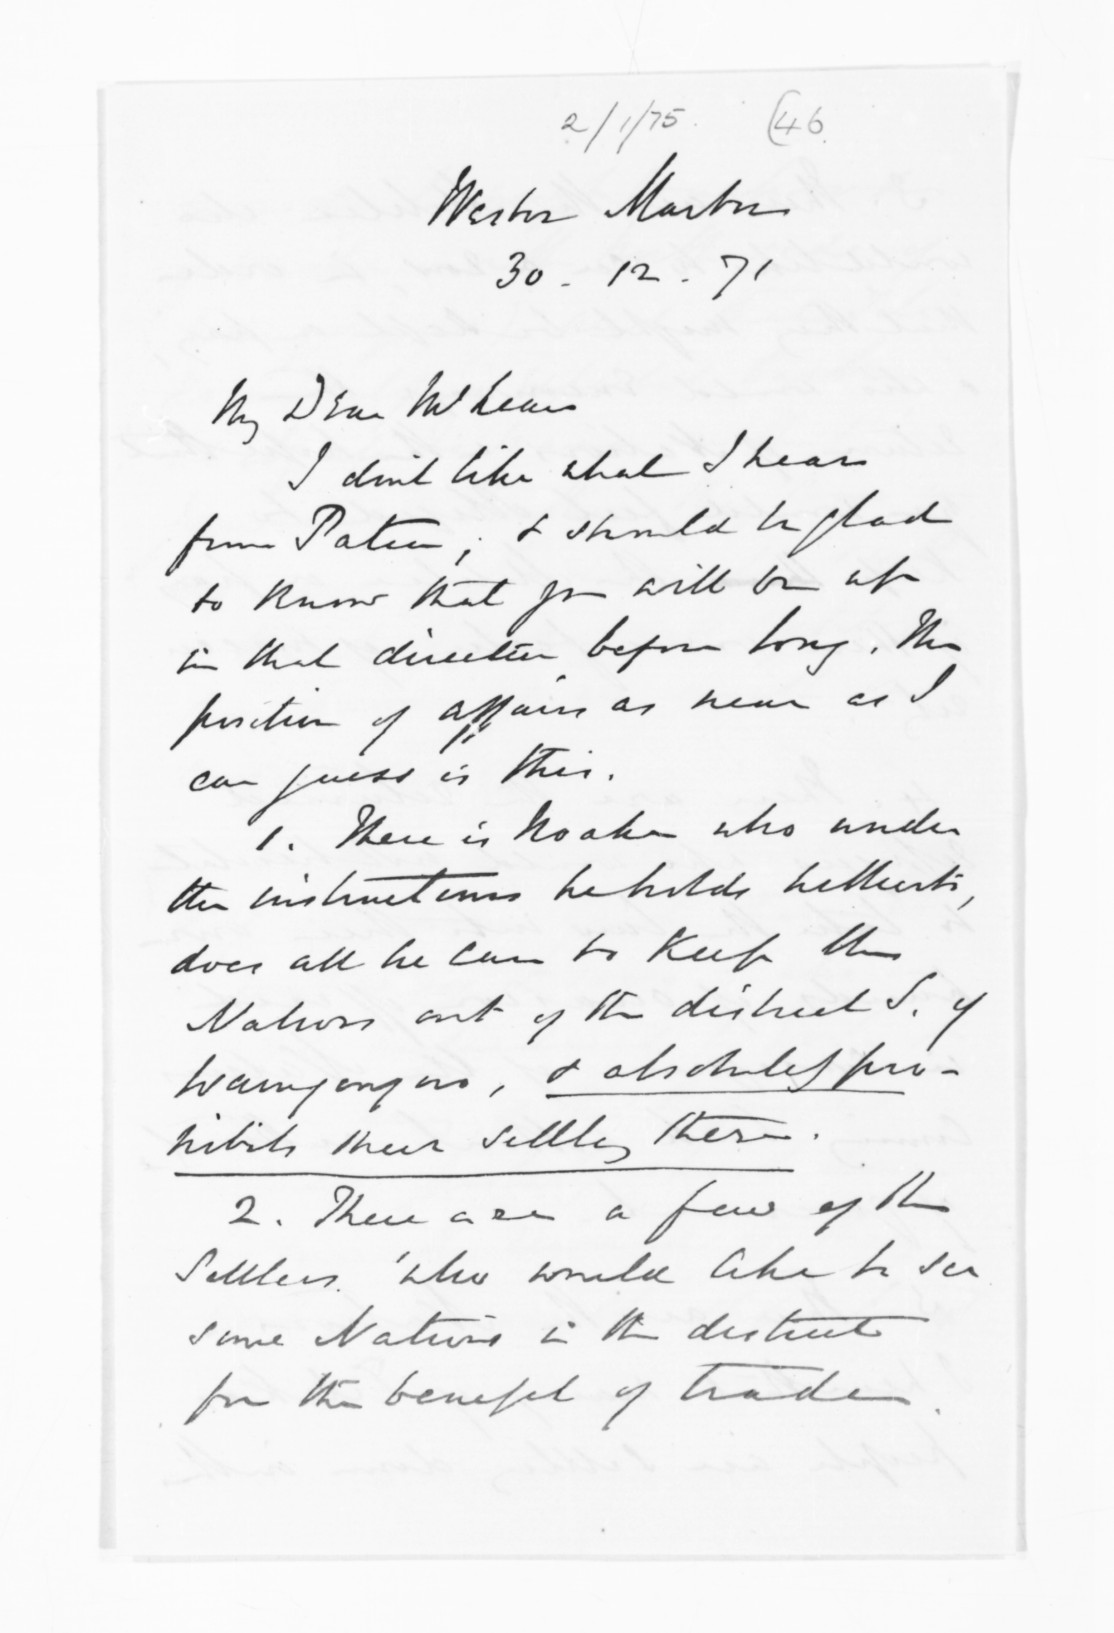 2/1/75. (46
Weston Marton
30. 12. 71
My Dear McLean
I dont like what I hear
from Patea, & should be glad
to know that you will be up
in that direction before long. The
position of affairs as near as I
can guess is this.
1. There is Noake who under
the instructions he holds hitherto,
does all he can to keep the
Natives out of the district S. of
Waingongoro, & absolutely pro-
hibits their settling there.
2. There are a few of the
Settlers who would like to see
some Natives in the district
for the benefit of trade.